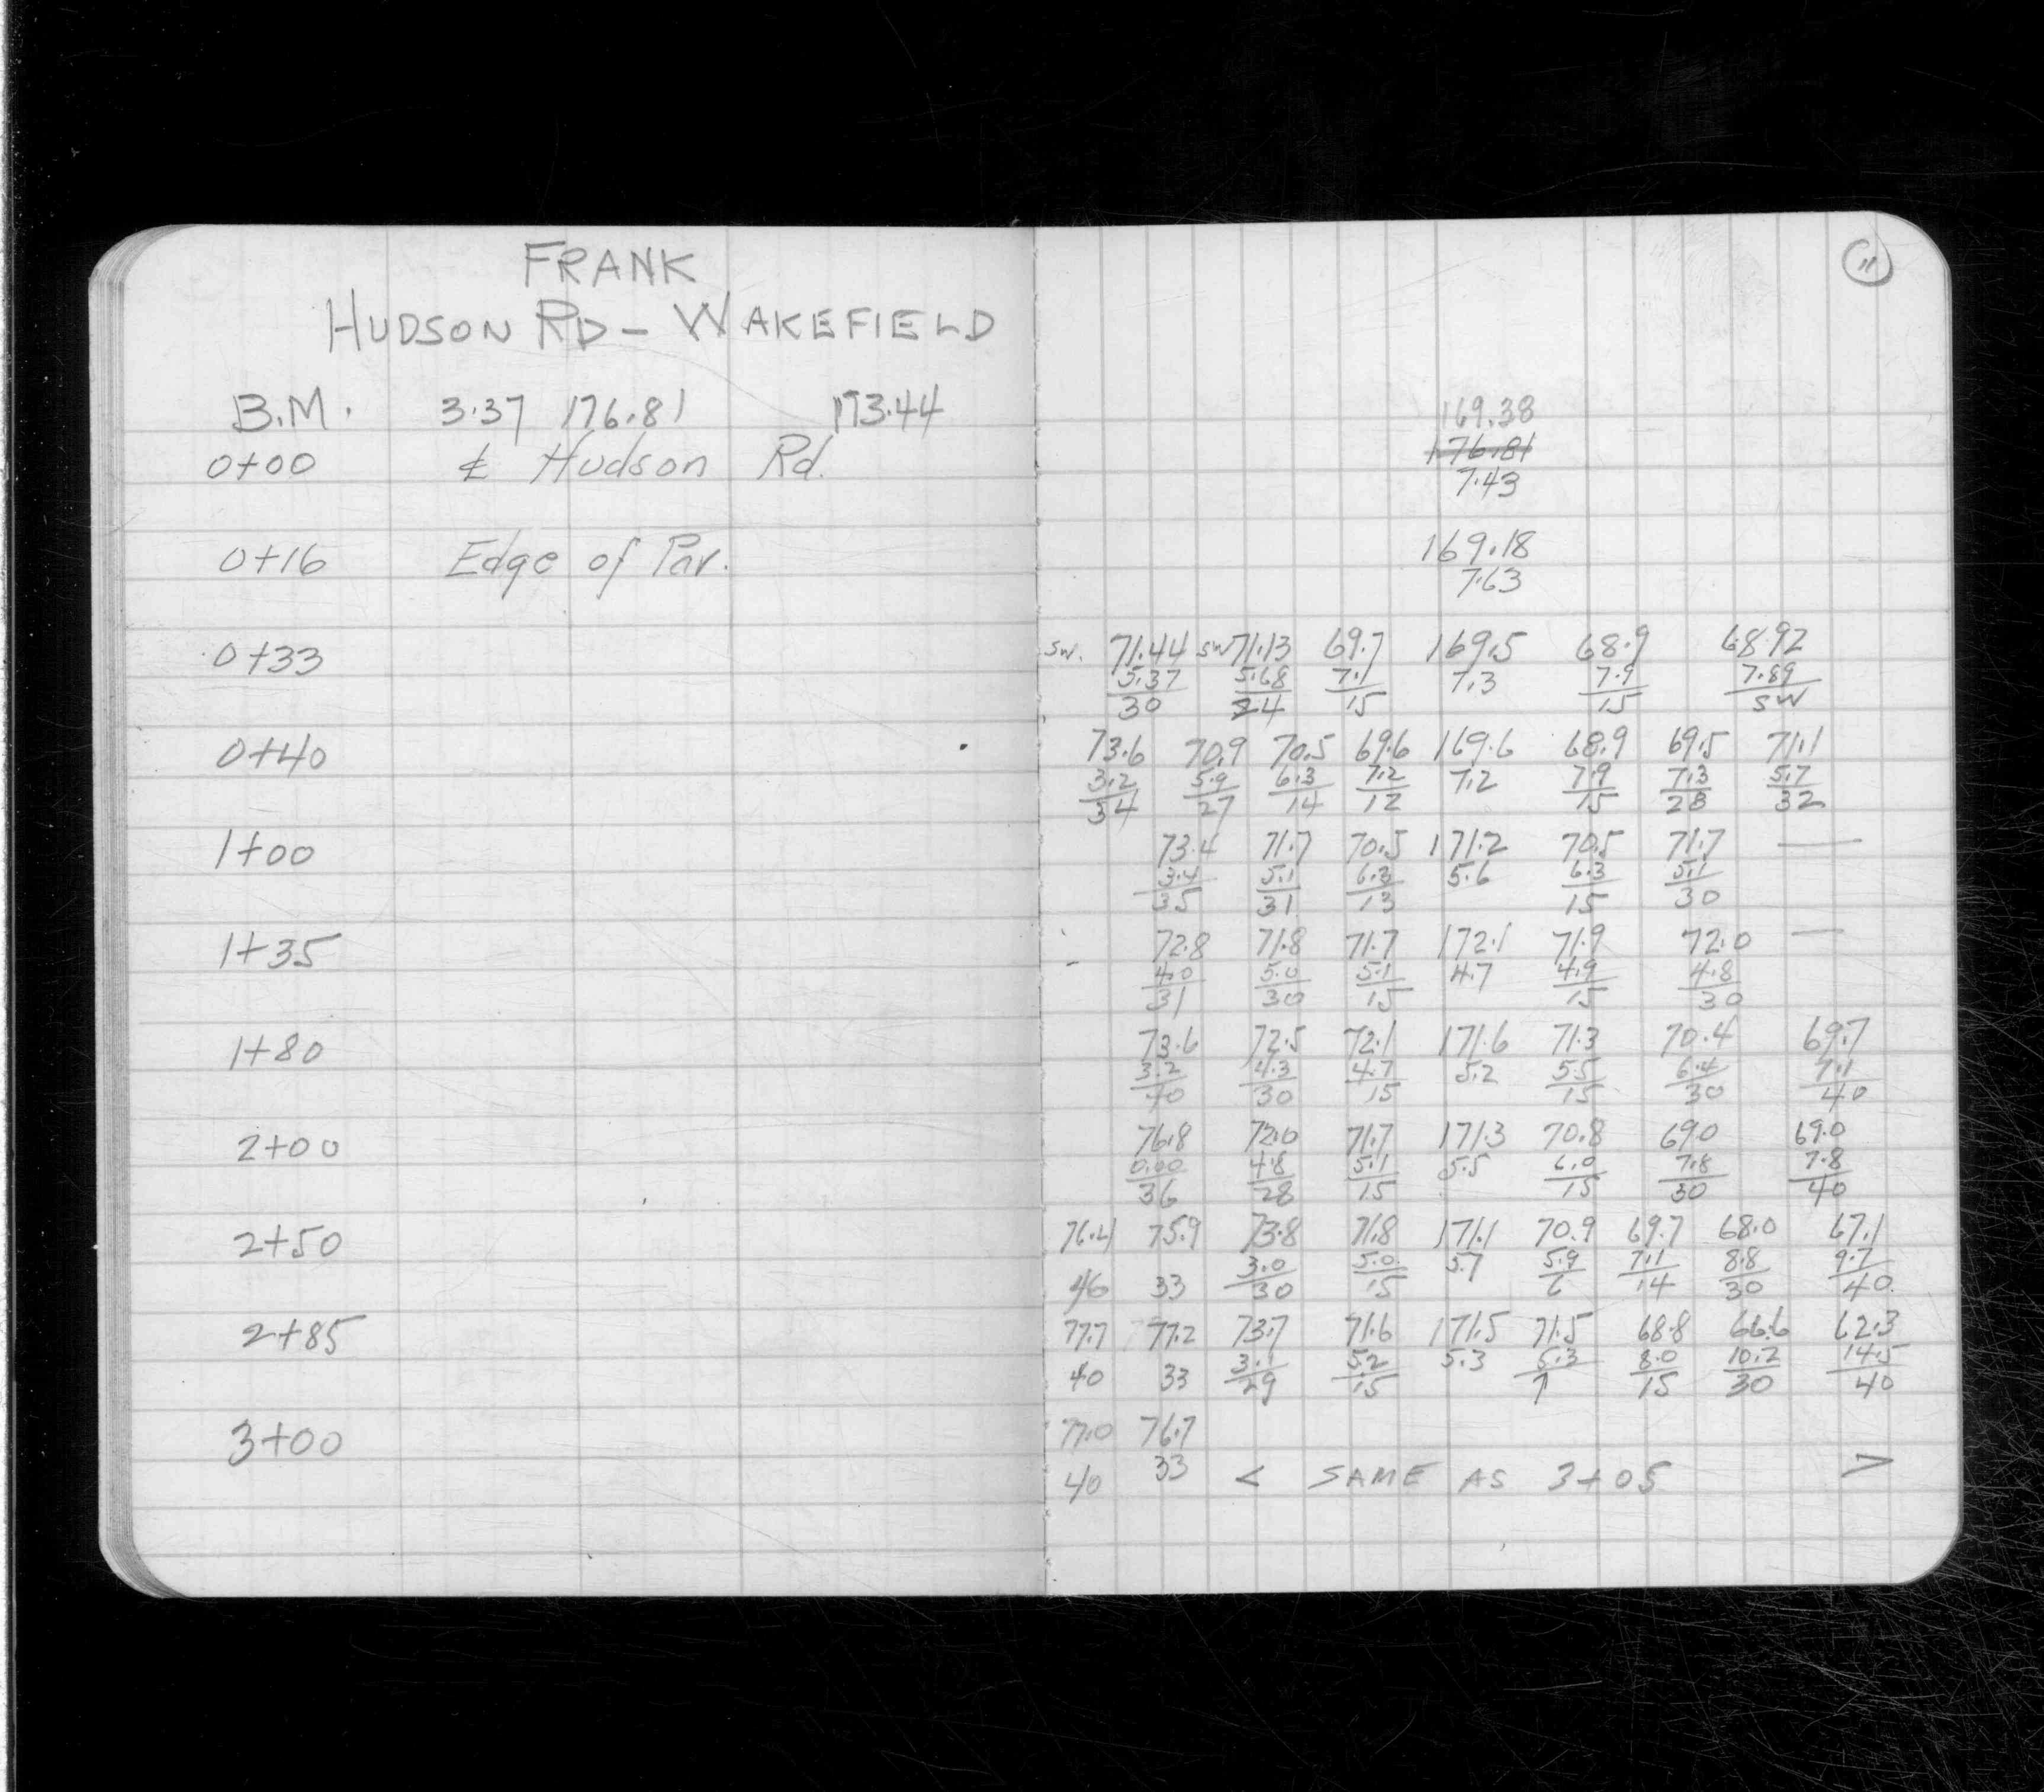 FRANK
HUDSON RD - WAKEFIELD
11
B.M. 3.37 176.81 173.44
169.38
0+00 ℄ Hudson Rd.
176.81
7.43
0+16 Edge of Pav.
169.18
7.63
0+33
SW. 71.44 SW 71.13 69.7 169.5 68.9 68.92
5.37 5.68 7.1 7.3 7.9 7.89
30 24 15 15 SW
0+40
73.6 70.9 70.5 69.6 169.6 68.9 69.5 71.1
3.2 5.9 6.3 7.2 7.2 7.9 7.3 5.7
34 27 14 12 15 28 32
1+00
73.4 71.7 70.5 171.2 70.5 71.7 —
3.4 5.1 6.3 5.6 6.3 5.1
35 31 13 15 30
1+35
- 72.8 71.8 71.7 172.1 71.9 72.0 —
4.0 5.0 5.1 4.7 4.9 4.8
31 30 15 15 30
1+80
73.6 72.5 72.1 171.6 71.3 70.4 69.7
3.2 4.3 4.7 5.2 5.5 6.4 7.1
40 30 15 15 30 40
2+00
76.8 72.0 71.7 171.3 70.8 69.0 69.0
0.00 4.8 5.1 5.5 6.0 7.8 7.8
36 28 15 15 30 40
2+50
76.4 75.9 73.8 71.8 171.1 70.9 69.7 68.0 67.1
3.0 5.0 5.7 5.9 7.1 8.8 9.7
46 33 30 15 6 14 30 40
2+85
77.7 77.2 73.7 71.6 171.5 71.5 68.8 66.6 62.3
3.1 5.2 5.3 5.3 8.0 10.2 14.5
40 33 29 15 15 30 40
3+00
77.0 76.7
40 33 < SAME AS 3+05 >